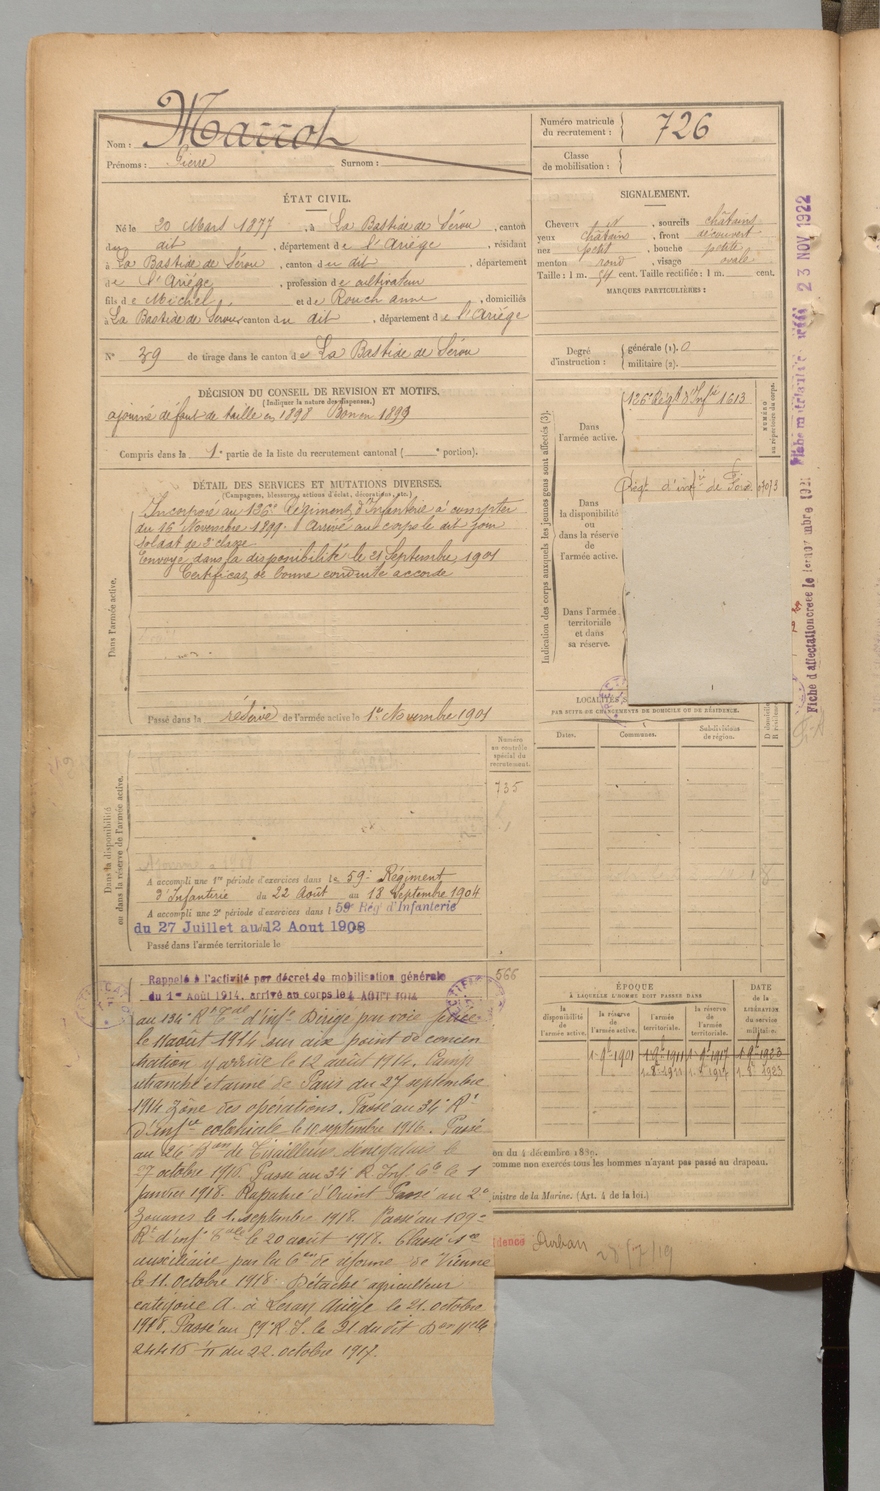 Nom : Marrot
Prénoms : Pierre Surnom :
Numéro matricule du recrutement : 726
Classe de mobilisation :
ÉTAT CIVIL.
Né le 20 Mars 1877, à La Bastide de Sérou, canton
du dit, département de l'Ariège, résidant
à La Bastide de Sérou, canton du dit, département
de l'Ariège, profession de cultivateur
fils de Michel et de Rouch anne, domiciliés
à La Bastide de Serou canton du dit, département de l'Ariège
N° 39 de tirage dans le canton de La Bastide de Sérou
SIGNALEMENT.
Cheveux, sourcils châtains
yeux châtains, front découvert
nez petit, bouche petite
menton rond, visage ovale
Taille : 1 m. 54 cent. Taille rectifiée : 1 m. cent.
MARQUES PARTICULIÈRES :
Degré d'instruction : générale (1). 0
militaire (2).
DÉCISION DU CONSEIL DE REVISION ET MOTIFS.
(Indiquer la nature des dispenses.)
ajourné défaut de taille en 1898 Bon en 1899
Compris dans la 1e partie de la liste du recrutement cantonal ( e portion).
DÉTAIL DES SERVICES ET MUTATIONS DIVERSES.
(Campagnes, blessures, actions d'éclat, décorations, etc.)
Dans l'armée active.
Incorporé au 126e Régiment d'Infanterie à compter
du 16 Novembre 1899. Arrivé au corps le dit jour
soldat de 2e classe
Envoyé dans la disponibilité le 21 Septembre 1901
Certificat de bonne conduite accordé
Passé dans la réserve de l'armée active le 1er Novembre 1901
Indication des corps auxquels les jeunes gens sont affectés (3).
Dans l'armée active.
126e Régt d'Infie 1613
NUMÉRO au répertoire du corps.
Dans la disponibilité ou dans la réserve de l'armée active.
Régt d'infie de Foix
Dans l'armée territoriale et dans sa réserve.
Fiche d'affectation créée le
23 NOV 1922
LOCALITÉS S
PAR SUITE DE CHANGEMENTS DE DOMICILE OU DE RÉSIDENCE.
Dates. Communes. Subdivisions de région. D domicile R résidence
Dans la disponibilité ou dans la réserve de l'armée active.
Numéro au contrôle spécial du recrutement.
735
A accompli une 1re période d'exercices dans le 59e Régiment
d'Infanterie du 22 Août au 18 Septembre 1904
A accompli une 2e période d'exercices dans l 59e Rég d'Infanterie
du 27 Juillet au 12 Aout 1908
Passé dans l'armée territoriale le
566
Rappelé à l'activité par décret de mobilisation générale
du 1er Août 1914, arrivé au corps le 4 AOUT 1914
au 134e Rt Tal d'infie Dirigé par voie ferrée
le 11 aout 1914 sur aux point de concen
tration y arrive le 12 août 1914. Camp
retranché de Paris du 27 septembre
1914 Zône des opérations. Passé au 34e Rt
d'infie coloniale le 11 septembre 1916. Passé
au 26 Bon de Tirailleurs Sénégalais le
7 octobre 1916. Passé au 34e R Inf Cle le 1
janvier 1918. Rapatrié d'Orient Passé au 2e
Zouaves le 1 septembre 1918. Passé au 109e
Rt d'inf le 20 août 1918. Classé sce
auxiliaire par la Con de réforme de Vienne
le 11 octobre 1918. Détaché agriculteur
catégorie A. à Leran Ariège le 21 octobre
1918. Passé au 59e R.I. le 31 du dit Don Mlle
24416 du 22 octobre 1917.
ÉPOQUE
À LAQUELLE L'HOMME DOIT PASSER DANS
la disponibilité de l'armée active. la réserve de l'armée active. l'armée territoriale. la réserve de l'armée territoriale.
DATE de la LIBÉRATION du service militaire.
1 9bre 1901 1 9bre 1911 1 9bre 1917 1 9bre 1923
ou du 4 décembre 1889.
comme non exercés tous les hommes n'ayant pas passé au drapeau.
inistre de la Marine. (Art. 4 de la loi.)
idence Durban 28/7/19